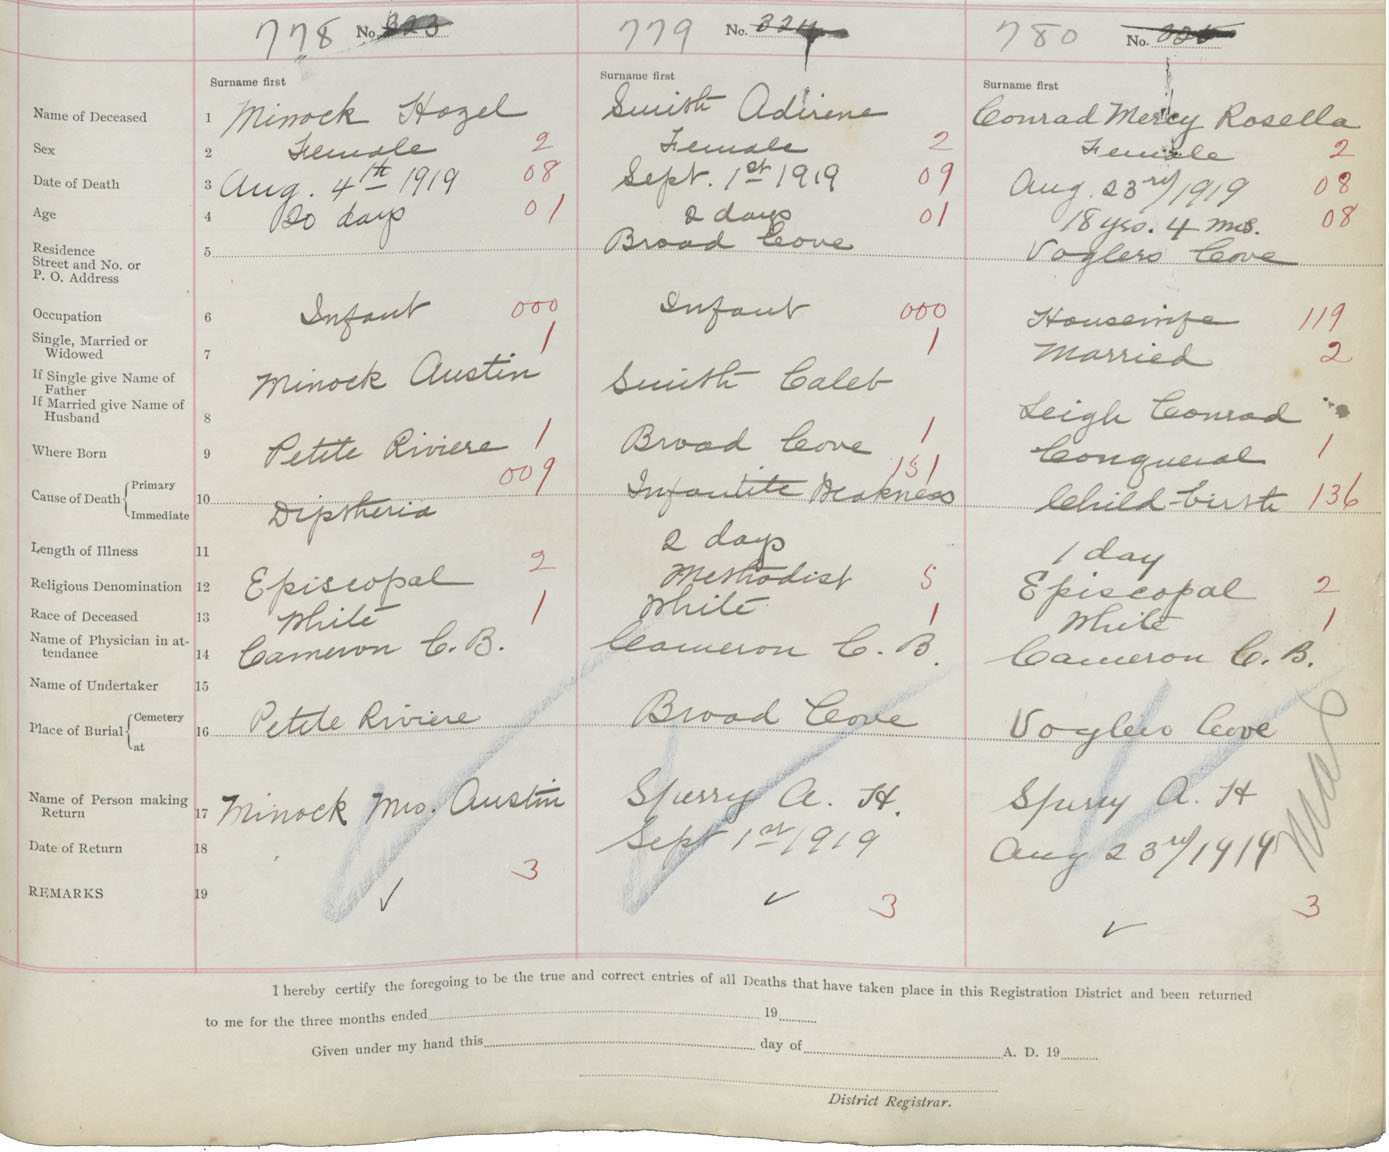 778 No. 323 779 No. 324 780 No. 325
Surname first Surname first Surname first
Name of Deceased 1 Minock Hazel Smith Adirene Conrad Mercy Rosella
Sex 2 Female 2 Female 2 Female 2
Date of Death 3 Aug. 4th 1919 08 Sept. 1st 1919 09 Aug. 23rd/1919 08
Age 4 20 days 01 2 days 01 18 yrs. 4 mos. 08
Residence
Street and No. or
P. O. Address 5 Broad Cove Voglers Cove
Occupation 6 Infant 000 Infant 000 Housewife 119
Single, Married or
Widowed 7 1 1 Married 2
If Single give Name of
Father Minock Austin Smith Caleb
If Married give Name of
Husband 8 Leigh Conrad
Where Born 9 Petite Riviere 1 Broad Cove 1 Conquerall 1
Cause of Death { Primary
Immediate 10 Diptheria 009 Infantile Weakness 151 Child-birth 136
Length of Illness 11 2 days 1 day
Religious Denomination 12 Episcopal 2 Methodist 5 Episcopal 2
Race of Deceased 13 White 1 White 1 White 1
Name of Physician in at-
tendance 14 Cameron C. B. Cameron C. B. Cameron C. B.
Name of Undertaker 15
Place of Burial { Cemetery
at 16 Petite Riviere Broad Cove Voglers Cove
Name of Person making
Return 17 Minock Mrs. Austin Sperry A. H. Sperry A. H
Date of Return 18 Sept 1st/1919 Aug 23rd/1919
REMARKS 19 3 3 3
I hereby certify the foregoing to be the true and correct entries of all Deaths that have taken place in this Registration District and been returned
to me for the three months ended 19
Given under my hand this day of A. D. 19
District Registrar.